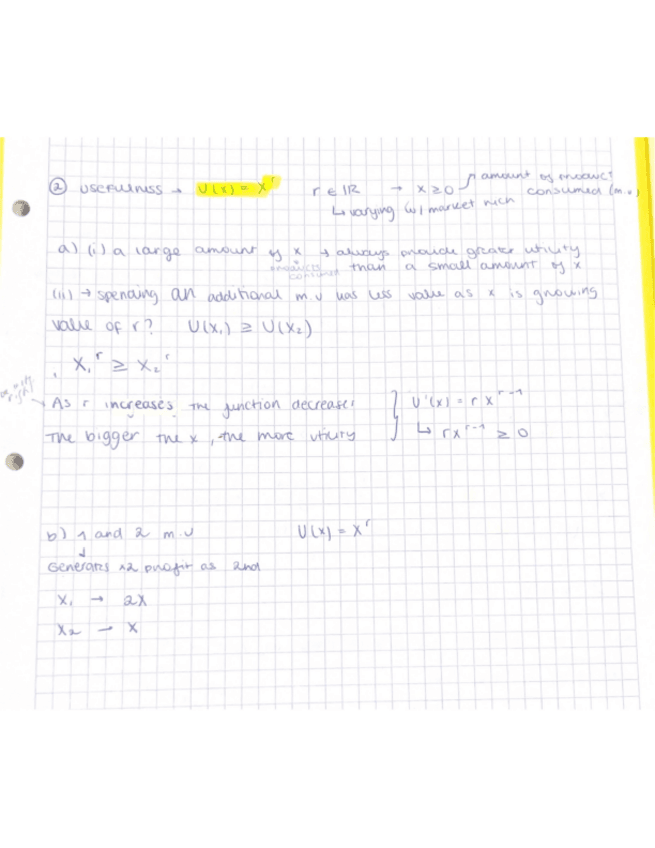 ② USEFULNESS → U(x) = x^r   r ∈ ℝ → x ≥ 0 → amount of product consumed (m.u)
↳ varying w/ market
a) (i) a large amount of x → always provide greater utility
products consumed than a small amount of x
(ii) → spending an additional m.u has less value as x is growing
value of r? U(x₁) ≥ U(x₂)
x₁^r ≥ x₂^r
As r increases the function decreases } U'(x) = r x^(r-1)
The bigger the x, the more utility ↳ rx^(r-1) ≥ 0
b) 1 and 2 m.u   U(x) = x^r
↓
Generates x2 profit as 2nd
x₁ → 2x
x₂ → x